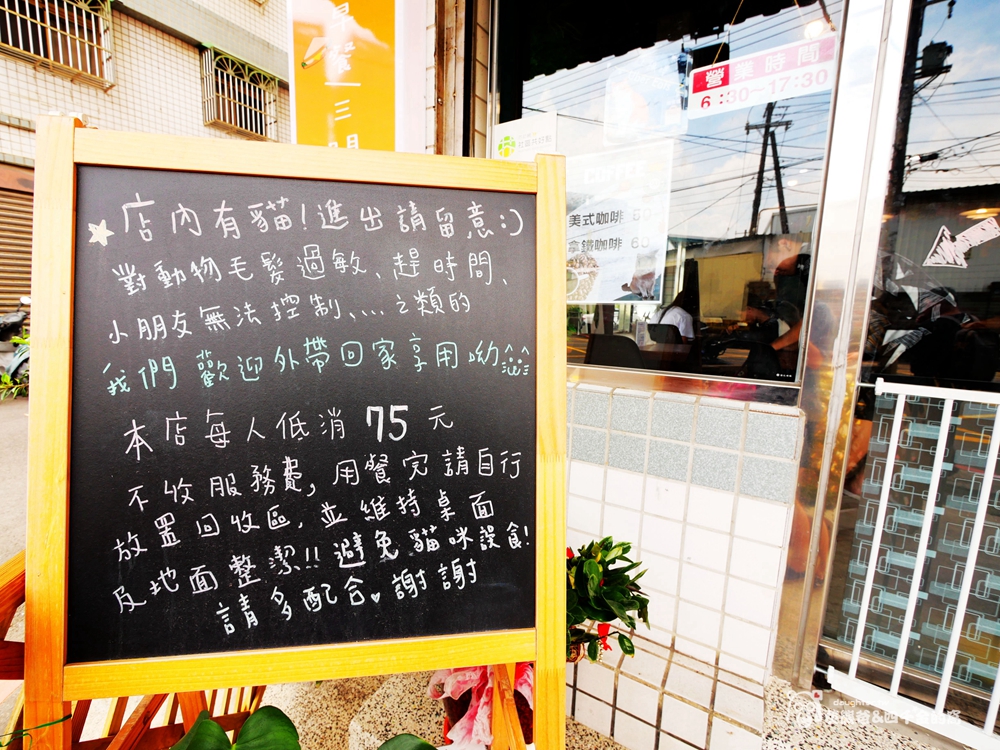 早餐｜三明
營業時間
6:30~17:30
美式咖啡 50
拿鐵咖啡 60
店內有貓!進出請留意:)
對動物毛髮過敏、趕時間、
小朋友無法控制、...之類的
我們歡迎外帶回家享用呦
本店每人低消 75 元
不收服務費,用餐完請自行
放置回收區,並維持桌面
及地面整潔!!避免貓咪誤食!
請多配合。謝謝